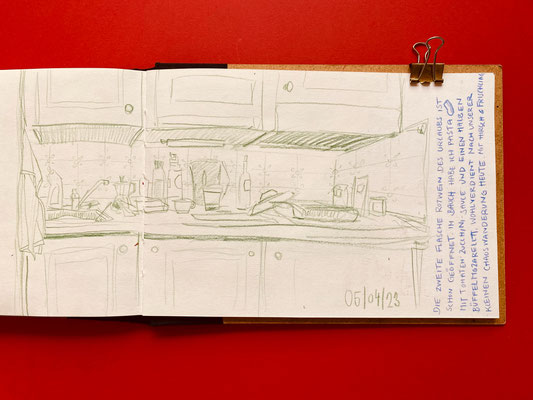 DIE ZWEITE FLASCHE ROTWEIN DES URLAUBS IST
SCHON GEÖFFNET IM BAUCH HABE ICH PASTA
MIT TOMATEN ZUCCHINI SAUCE UND EINEN HALBEN
BÜFFELMOZARELLA. WOHLVERDIENT NACH UNSERER
KLEINEN CHAOSWANDERUNG HEUTE MIT HIRSCH & FRÜHLING
05/04/23